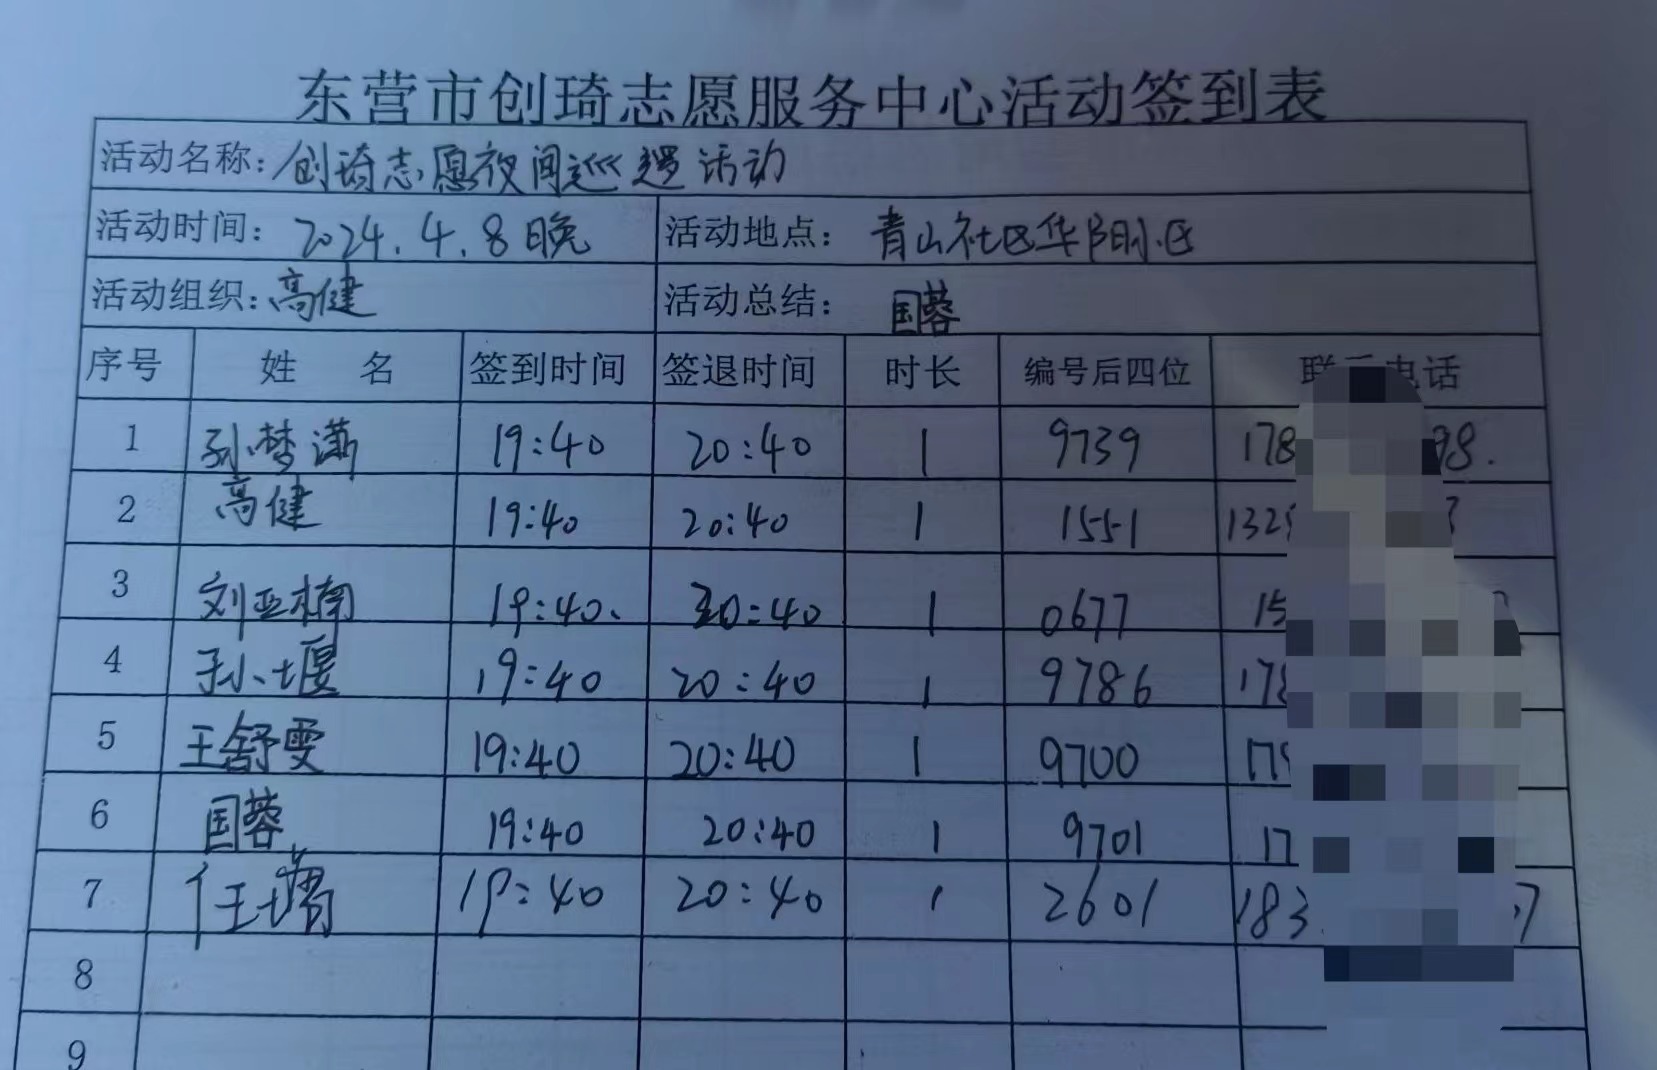 东营市创琦志愿服务中心活动签到表
活动名称：创琦志愿夜间巡逻活动
活动时间：2024.4.8晚 活动地点：青山社区华阳小区
活动组织：高健 活动总结：国蓉
序号 姓 名 签到时间 签退时间 时长 编号后四位 电话
1 孙梦潇 19:40 20:40 1 9739 178 98.
2 高健 19:40 20:40 1 1551 132
3 刘亚楠 19:40. 20:40 1 0677 15
4 孙堰 19:40 20:40 1 9786 178
5 王舒雯 19:40 20:40 1 9700 17
6 国蓉 19:40 20:40 1 9701 17
7 19:40 20:40 1 2601 183 7
8
9